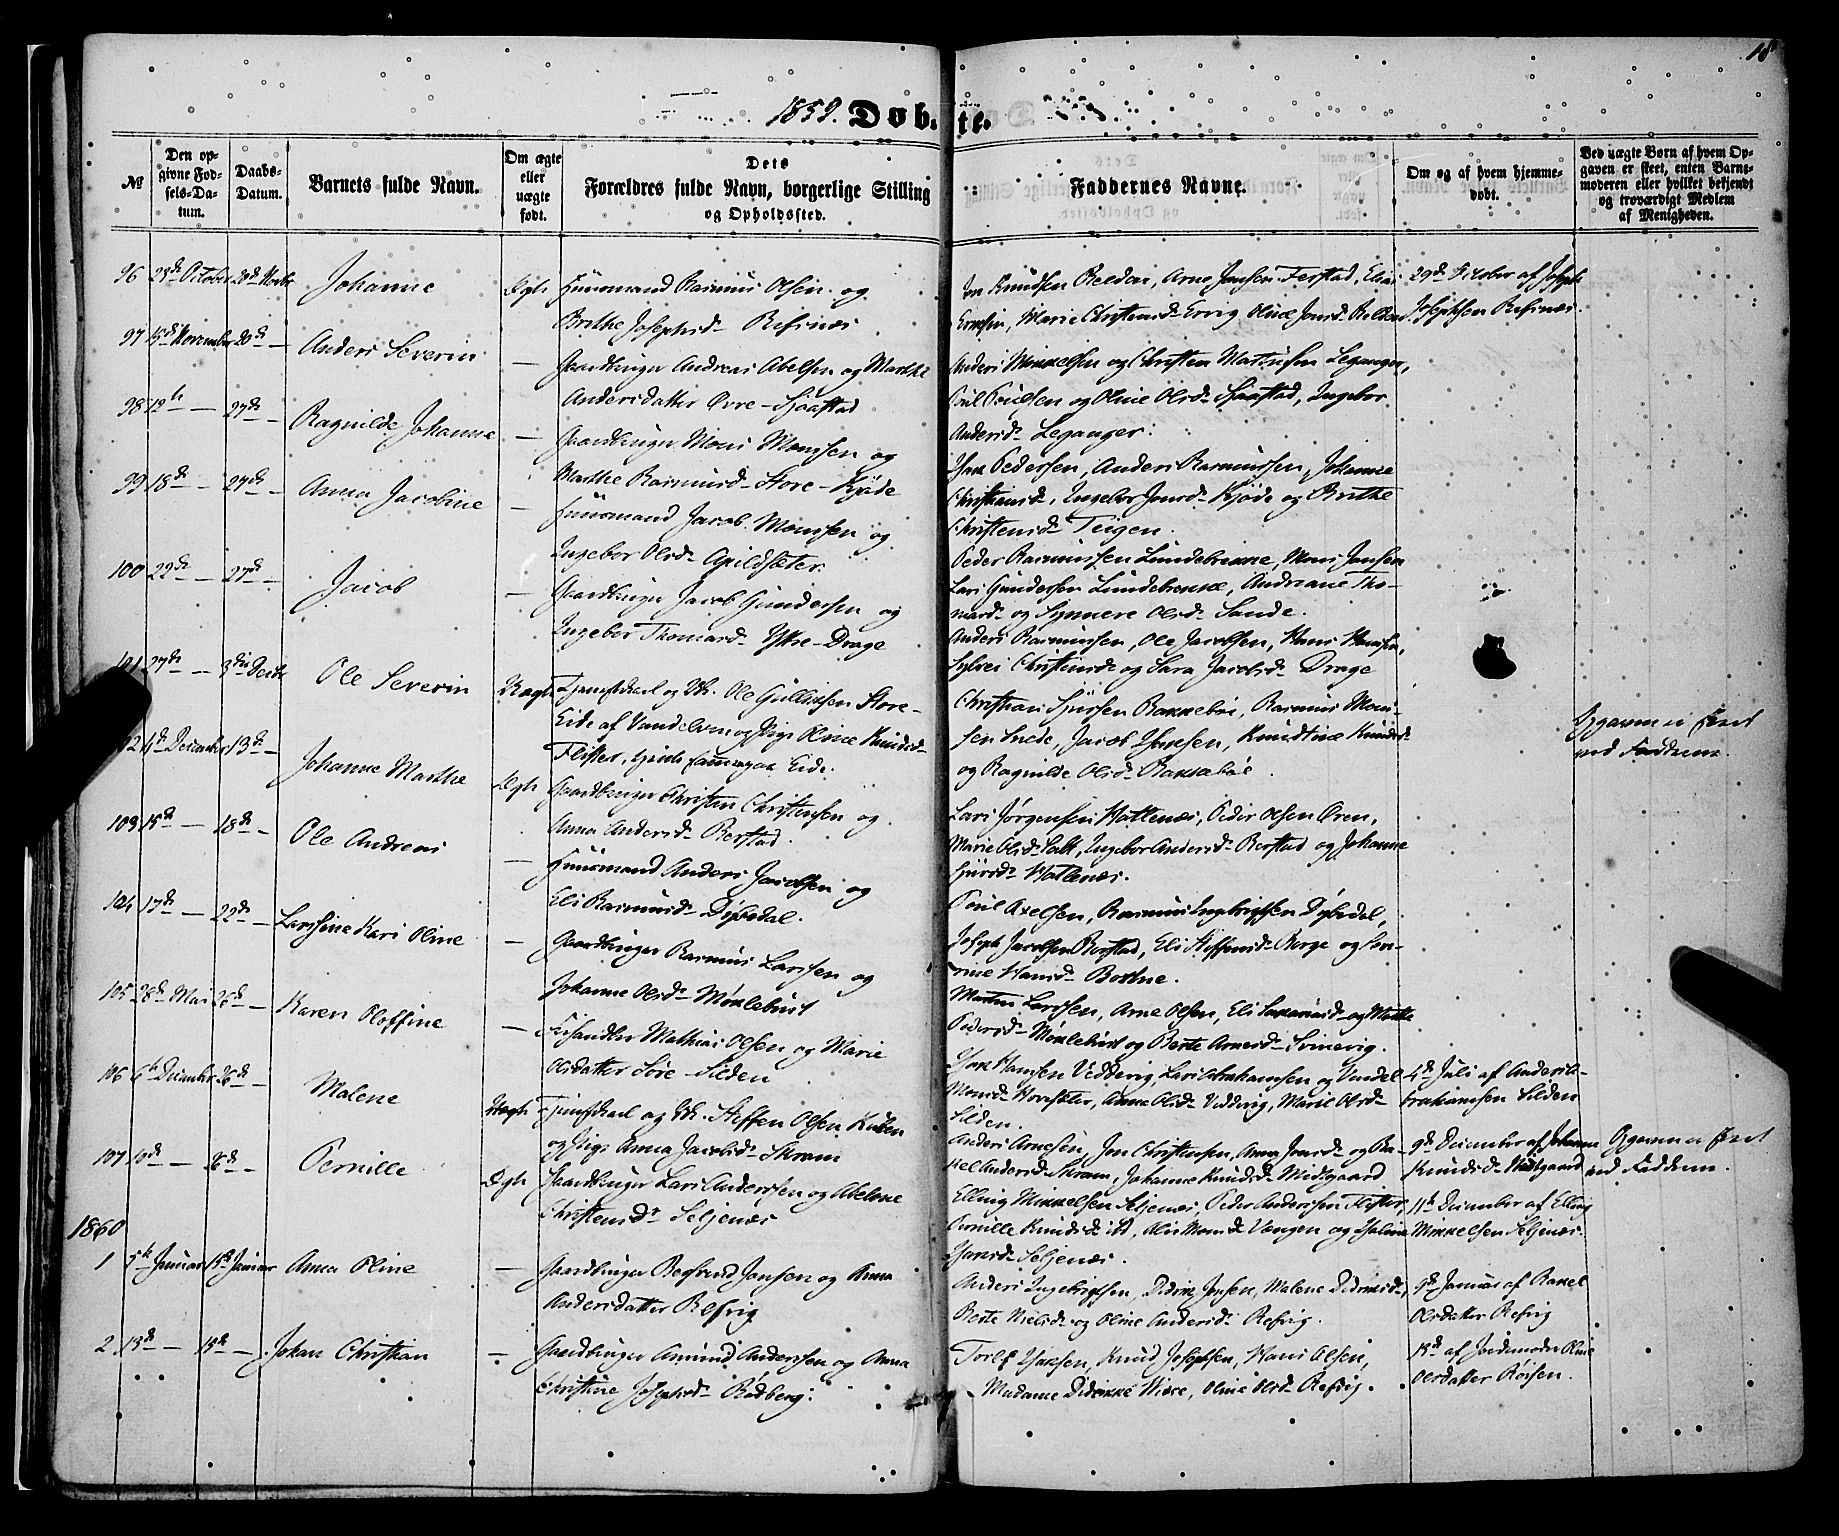 18
1859. Døb- te.
№ Den opgivne Fødsels-Datum. Daabs-Datum. Barnets fulde Navn. Om ægte eller uægte født. Dets Forældres fulde Navn, borgerlige Stilling og Opholdssted. Faddernes Navne. Om og af hvem hjemmedøbt. Ved uægte Børn af hvem Opgaven er skeet, enten Barnemoderen eller hvilket bekjendt og troværdigt Medlem af Menigheden.
96 28de October 20de Novbr Johanne Ægte Huusmand Rasmus Olsen og
Brithe Josephsd. Refsnæs
Jon Knudsen Reldon, Arne Jonsen Ferstad,
Marie Christensd. Ervig Oline Jonsd.
29de October af Joseph
Josephsen Refsnæs.
97 15de November 20de — Anders Severin — Gaardbruger Andreas Abelsen og Marthe
Andersdatter Øvre-Sjaastad
Anders Mikkelsen og Christen Leganger,
Poul Poulsen og Oline Olsd. Sjaastad, Ingebor
Andersd. Leganger.
98 12te — 27de — Ragnilde Johanne — Gaardbruger Mons Monsen og
Marthe Rasmusd. Store-Kjøde
Isak Pedersen, Anders Rasmussen, Johanne
Christiansd., Ingebor Jonsd. Kjøde og Brithe
Christensd. Teigen.
99 18de — 27de — Anna Jacobine — Huusmand Jacob Monsen og
Ingebor Olsd. Apildsæter
Peder Rasmussen Lundebrekke, Mons Jonsen
Lars Gundersen Lundebrekke, Andreane Tho-
masd. og Synnere Olsd. Sande.
100 22de — 27de — Jacob — Gaardbruger Jacob Gundersen og
Ingebor Thomasd. Ytre-Drage
Anders Rasmussen, Ole Jacobsen, Hans Hansen,
Sylvei Christensd. og Sara Jacobsd. Drage
101 27de — 3die Decbr Ole Severin Uægte Tjenestkarl og Uk. Ole Gulliksen Store-
Eide af Vandelven og Pige Oline Knudsd.
Flister, Eide.
Christian Sjursen Bakkebøe, Rasmus Mon-
sen Eide, Jacob Isaksen, Knudtine Knudsd.
og Ragnilde Olsd. Bakkebøe.
Opgaven er skeet
ved Fadderne.
102 4de December 13de — Johanne Marthe Ægte Gaardbruger Christen Christensen og
Anna Andersd. Berstad.
Lars Jørgensen Hatlenæs, Peder Olsen Øren,
Marie Olsd. Salt, Ingebor Andersd. Berstad og Johanne
Sjursd. Hatlenæs.
103 15de — 18de — Ole Andreas — Huusmand Anders Jacobsen og
Eli Rasmusd. Dybedal.
Poul Axelsen, Rasmus Ingebrigtsen Dybedal,
Joseph Jacobsen Berstad, Eli Steffensd. Berge og
Hansd. Bortne.
104 17de — 22de — Larssine Kari Oline — Gaardbruger Rasmus Larssen og
Johanne Olsd. Møklebust
Morten Larssen, Arne Olsen, Eli og Marthe
Pedersd. Møklebust og Berte Arnesd. Svinevig.
105 28de Mai 26de — Karen Oloffine — Mathias Olsen og Marie
Olsdatter Søre-Silden
Isak Hansen Vedvig, Lars Abrahamsen og Vendel
Monsd. Hornseter, Anne Olsd. Vedvig, Marie Olsd.
Silden.
4de Juli af Anders A-
brahamsen Silden
106 6te December 26de — Malene Uægte Tjenestkarl og Uk. Steffen Olsen
og Pige Anna Jacobsd. Skram
Anders Arnesen, Jon Christensen, Anna Jonsd. og Ra-
kel Andersd. Skram, Johanne Knudsd. Midtgaard
9de December af Johanne
Knudsd. Midtgaard
Opgaven er skeet
ved Fadderne.
107 10de — 26de — Pernille Ægte Gaardbruger Lars Anderssen og Abelone
Christensd. Seljenæs
Elling Mikkelsen Seljenæs, Peder Anderssen Flister,
Pernille Knudsd. Eide, Monsd. Vengen og
Isaksd. Seljenæs.
11te December af Elling
Mikkelsen Seljenæs.
1860
1 5te Januar 15de Januar Anna Oline — Gaardbruger Jonsen og Anna
Andersdatter Refvig
Anders Ingebrigtsen, Didrik Jonsen, Malene Didriksd.,
Berte Nielsd. og Oline Andersd. Refvig.
9de Januar af Rakel
Olsdatter Refvig
2 13de — 15de — Johan Christian — Gaardbruger Amund Anderssen og Anna
Christine Josephsd. Rødberg.
Torlf Isaksen, Knud Josephsen, Hans Olsen,
Madame Didrikke Wiese, Oline Olsd. Refvig.
13de af Jordemoder Oline
Olsdatter Røisen.